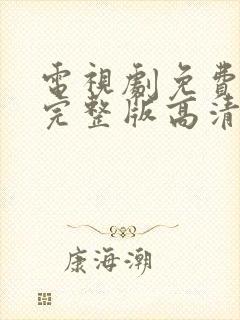 電視劇免費
完整版高清
康海潮